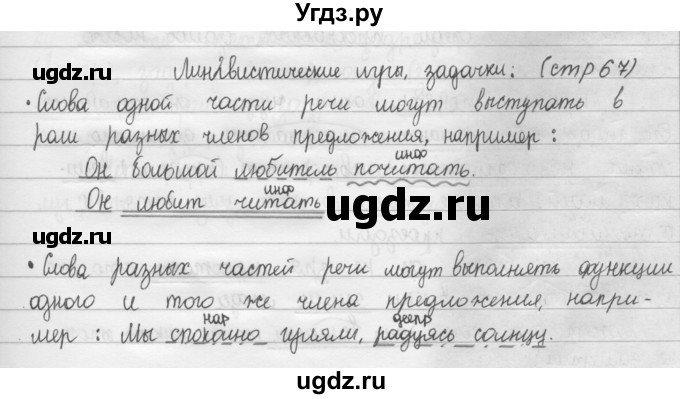 Угдз.ру
ugdz.ru ugdz.ru ugdz.ru
Лингвистические игры, задачки: (стр 67)
• Слова одной части речи могут выступать в
роли разных членов предложения, например:
инф
Он большой любитель почитать.
инф
Он любит читать
ugdz.ru
ugdz.ru ugdz.ru
• Слова разных частей речи могут выполнять функции
одного и того же члена предложения, напри-
нар деепр
мер: Мы спокойно гуляли, радуясь солнцу.
ugdz.ru